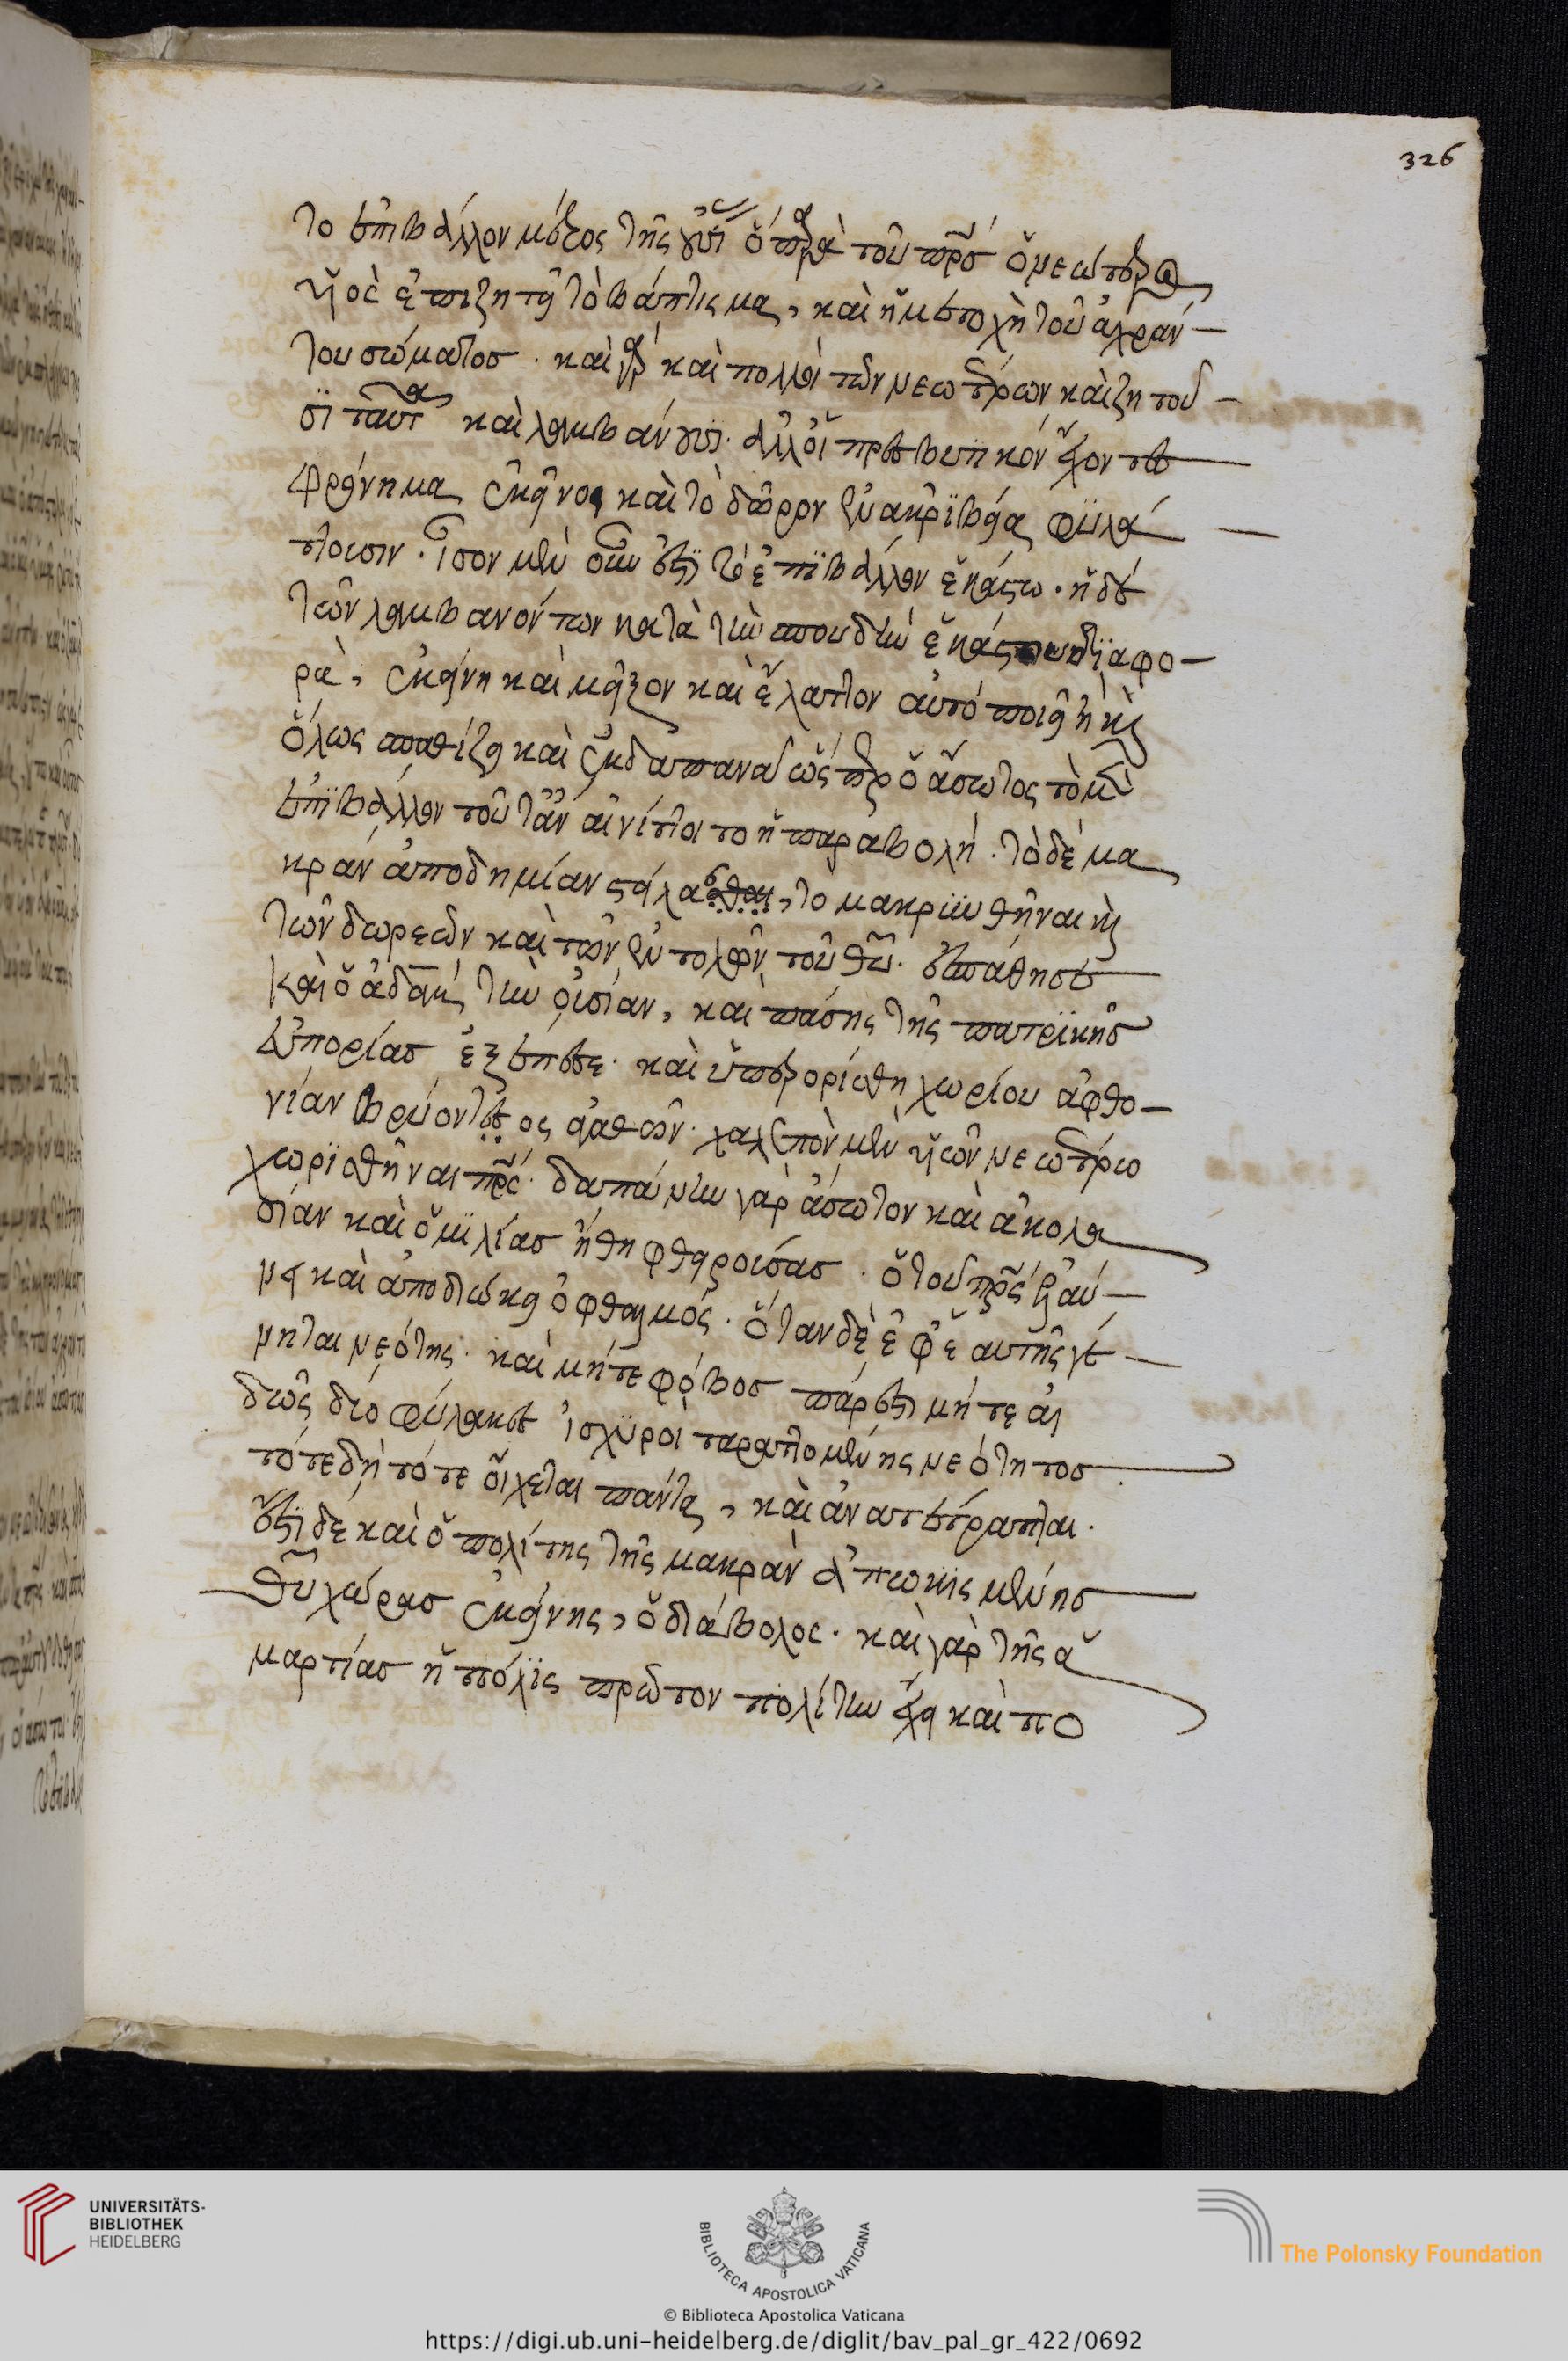 326
το ἐπιβάλλον μέρος τῆς οὐσί ὅπερ παρὰ τοῦ πρσ ὁ νεώτερος
υἱὸς ἐπιζητεῖ τὸ βάπτισμα, καὶ ἡ μετοχὴ τοῦ ἀχράν
του σώματος. καὶ γὰρ καὶ πολλοὶ τῶν νεωτέρων καὶ ζητοῦ
σι ταῦτα καὶ λαμβάνουσι. ἀλλ' οἱ πρεσβυτικὸν ἔχοντες
φρόνημα ἐκεῖνοι καὶ τὸ δῶρον ἐν ἀκριβείᾳ φυλά
ττουσιν. ἴσον μὲν οὖν ἐστὶ τὸ ἐπιβάλλον ἑκάστω. ἡ δὲ
τῶν λαμβανόντων κατὰ τὴν σπουδὴν ἑκάστου διαφο
ρὰ, ἐκείνη καὶ μεῖζον καὶ ἔλαττον αὐτό ποιεῖ ἢ καὶ
ὅλως σπαθίζει καὶ ἐκδαπανᾶ ὥσπερ ὁ ἄσωτος τὸ μὲν
ἐπιβάλλον τοῦτ' ἂν αἰνίττοιτο ἡ παραβολή. τὸ δὲ μα
κρὰν ἀποδημίαν στείλασθαι, το μακρυνθῆναι καὶ
τῶν δωρεῶν καὶ τῶν ἐντολῶν τοῦ θυ. ἐσπάθησε
καὶ ὁ ἀδὰμ τὴν οὐσίαν, καὶ πάσης τῆς πατρικῆς
εὐπορίας ἐξέπεσε. καὶ ὑπερορίσθη χωρίου ἀφθο
νίαν βρύοντος ἀγαθῶν. χαλεπὸν μὲν υἱῶν νεωτέρω
χωρισθῆναι πρς. δαπάνην γὰρ ἄσωτον καὶ ἀκολα
σίαν καὶ ὁμιλίας ἤθη φθειρούσας. ὁ τοῦ πρς
καὶ ἀποδιώκει ὀφθαλμός. ὅταν δὲ ἐφ' ἑαυτῆς γέ
νηται νεότης. καὶ μήτε φόβος πάρεστι μήτε αἰ
δὼς δύο φύλακες ἰσχυροὶ ταραττομένης νεότητος
τότε δὴ τότε οἴχεται πάντα, καὶ ἀνατέτραπται.
ἐστὶ δὲ καὶ ὁ πολίτης τῆς μακρὰν ἀπωκισμένης
θυ χώρας ἐκείνης, ὁ διάβολος. καὶ γὰρ τῆς ἁ
μαρτίας ἡ πόλις πρῶτον πολίτην ἔχει καὶ πο
UNIVERSITÄTS-
BIBLIOTHEK
HEIDELBERG
BIBLIOTECA APOSTOLICA VATICANA
The Polonsky Foundation
© Biblioteca Apostolica Vaticana
https://digi.ub.uni-heidelberg.de/diglit/bav_pal_gr_422/0692